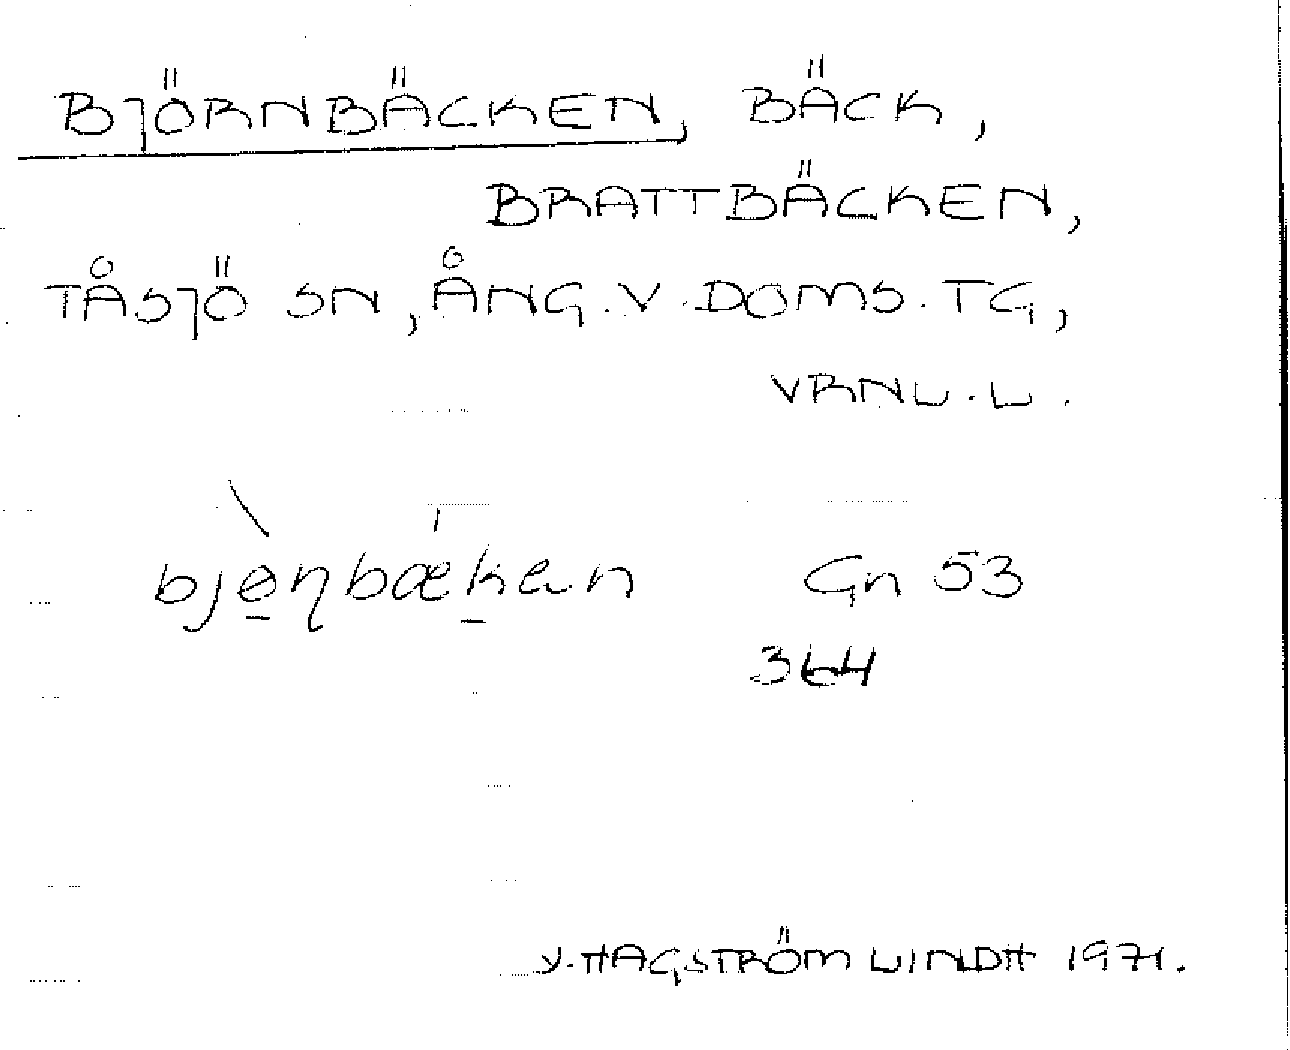 BJÖRNBÄCKEN, BÄCK,
BRATTBÄCKEN,
TÅSJÖ SN, ÅNG. V. DOMS. TG,
VRNL. L.
bjɵṇbækan Gn 53
364
Y. HAGSTRÖM LINDH 1971.